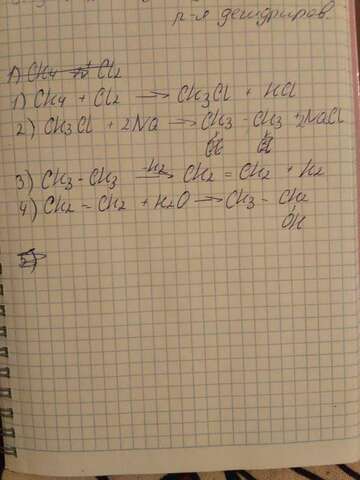 р-я дегидриров.
1) CH4 + Cl2
1) CH4 + Cl2 → CH3Cl + HCl
2) CH3Cl + 2Na → CH3 - CH3 + 2NaCl
3) CH3 - CH3 -H2→ CH2 = CH2 + H2
4) CH2 - CH2 + H2O → CH3 - CH2
OH
5)